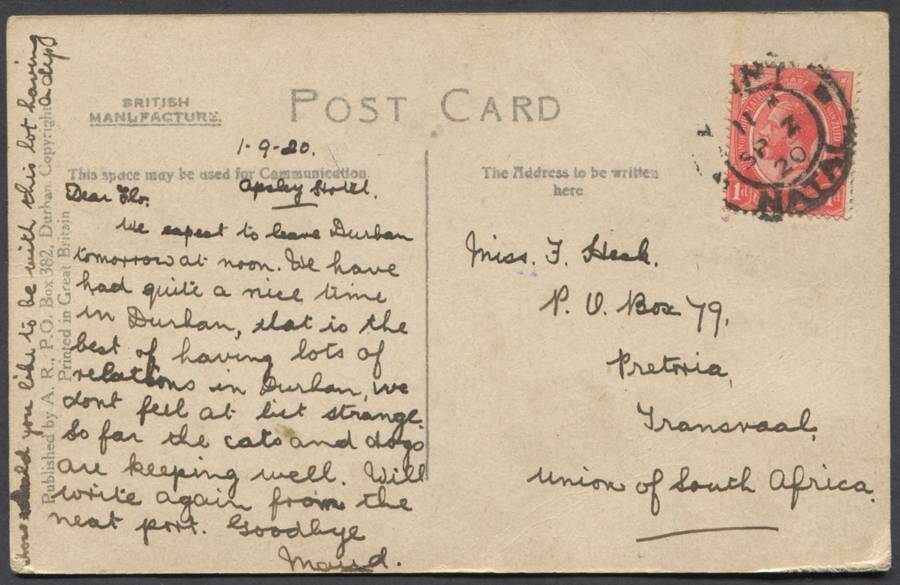 BRITISH
MANUFACTURE.
POST CARD
This space may be used for Communication
The Address to be written
here
1-9-20.
Apsley Hotel.
Dear Flo.
We expect to leave Durban
tomorrow at noon. We have
had quite a nice time
in Durban, that is the
best of having lots of
relations in Durban, we
dont feel at bit strange.
So far the cats and dogs
are keeping well. Will
write again from the
next port. Goodbye
Maud.
How would you like to be with this lot having
a dip
Published by A. R., P.O. Box 382, Durban Copyright
Printed in Great Britain
Miss. F. Hesk.
P. O. Box 79,
Pretoria,
Transvaal,
Union of South Africa.
NATAL
11 A
2
SP
20
1d